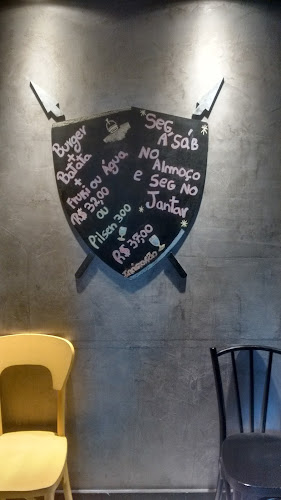 Burger
+
Batata
+
Fruki ou Água
R$ 32,00
ou
Pilsen 300
R$ 37,00
SEG
A SÁB
NO
Almoço
e SEG NO
Jantar